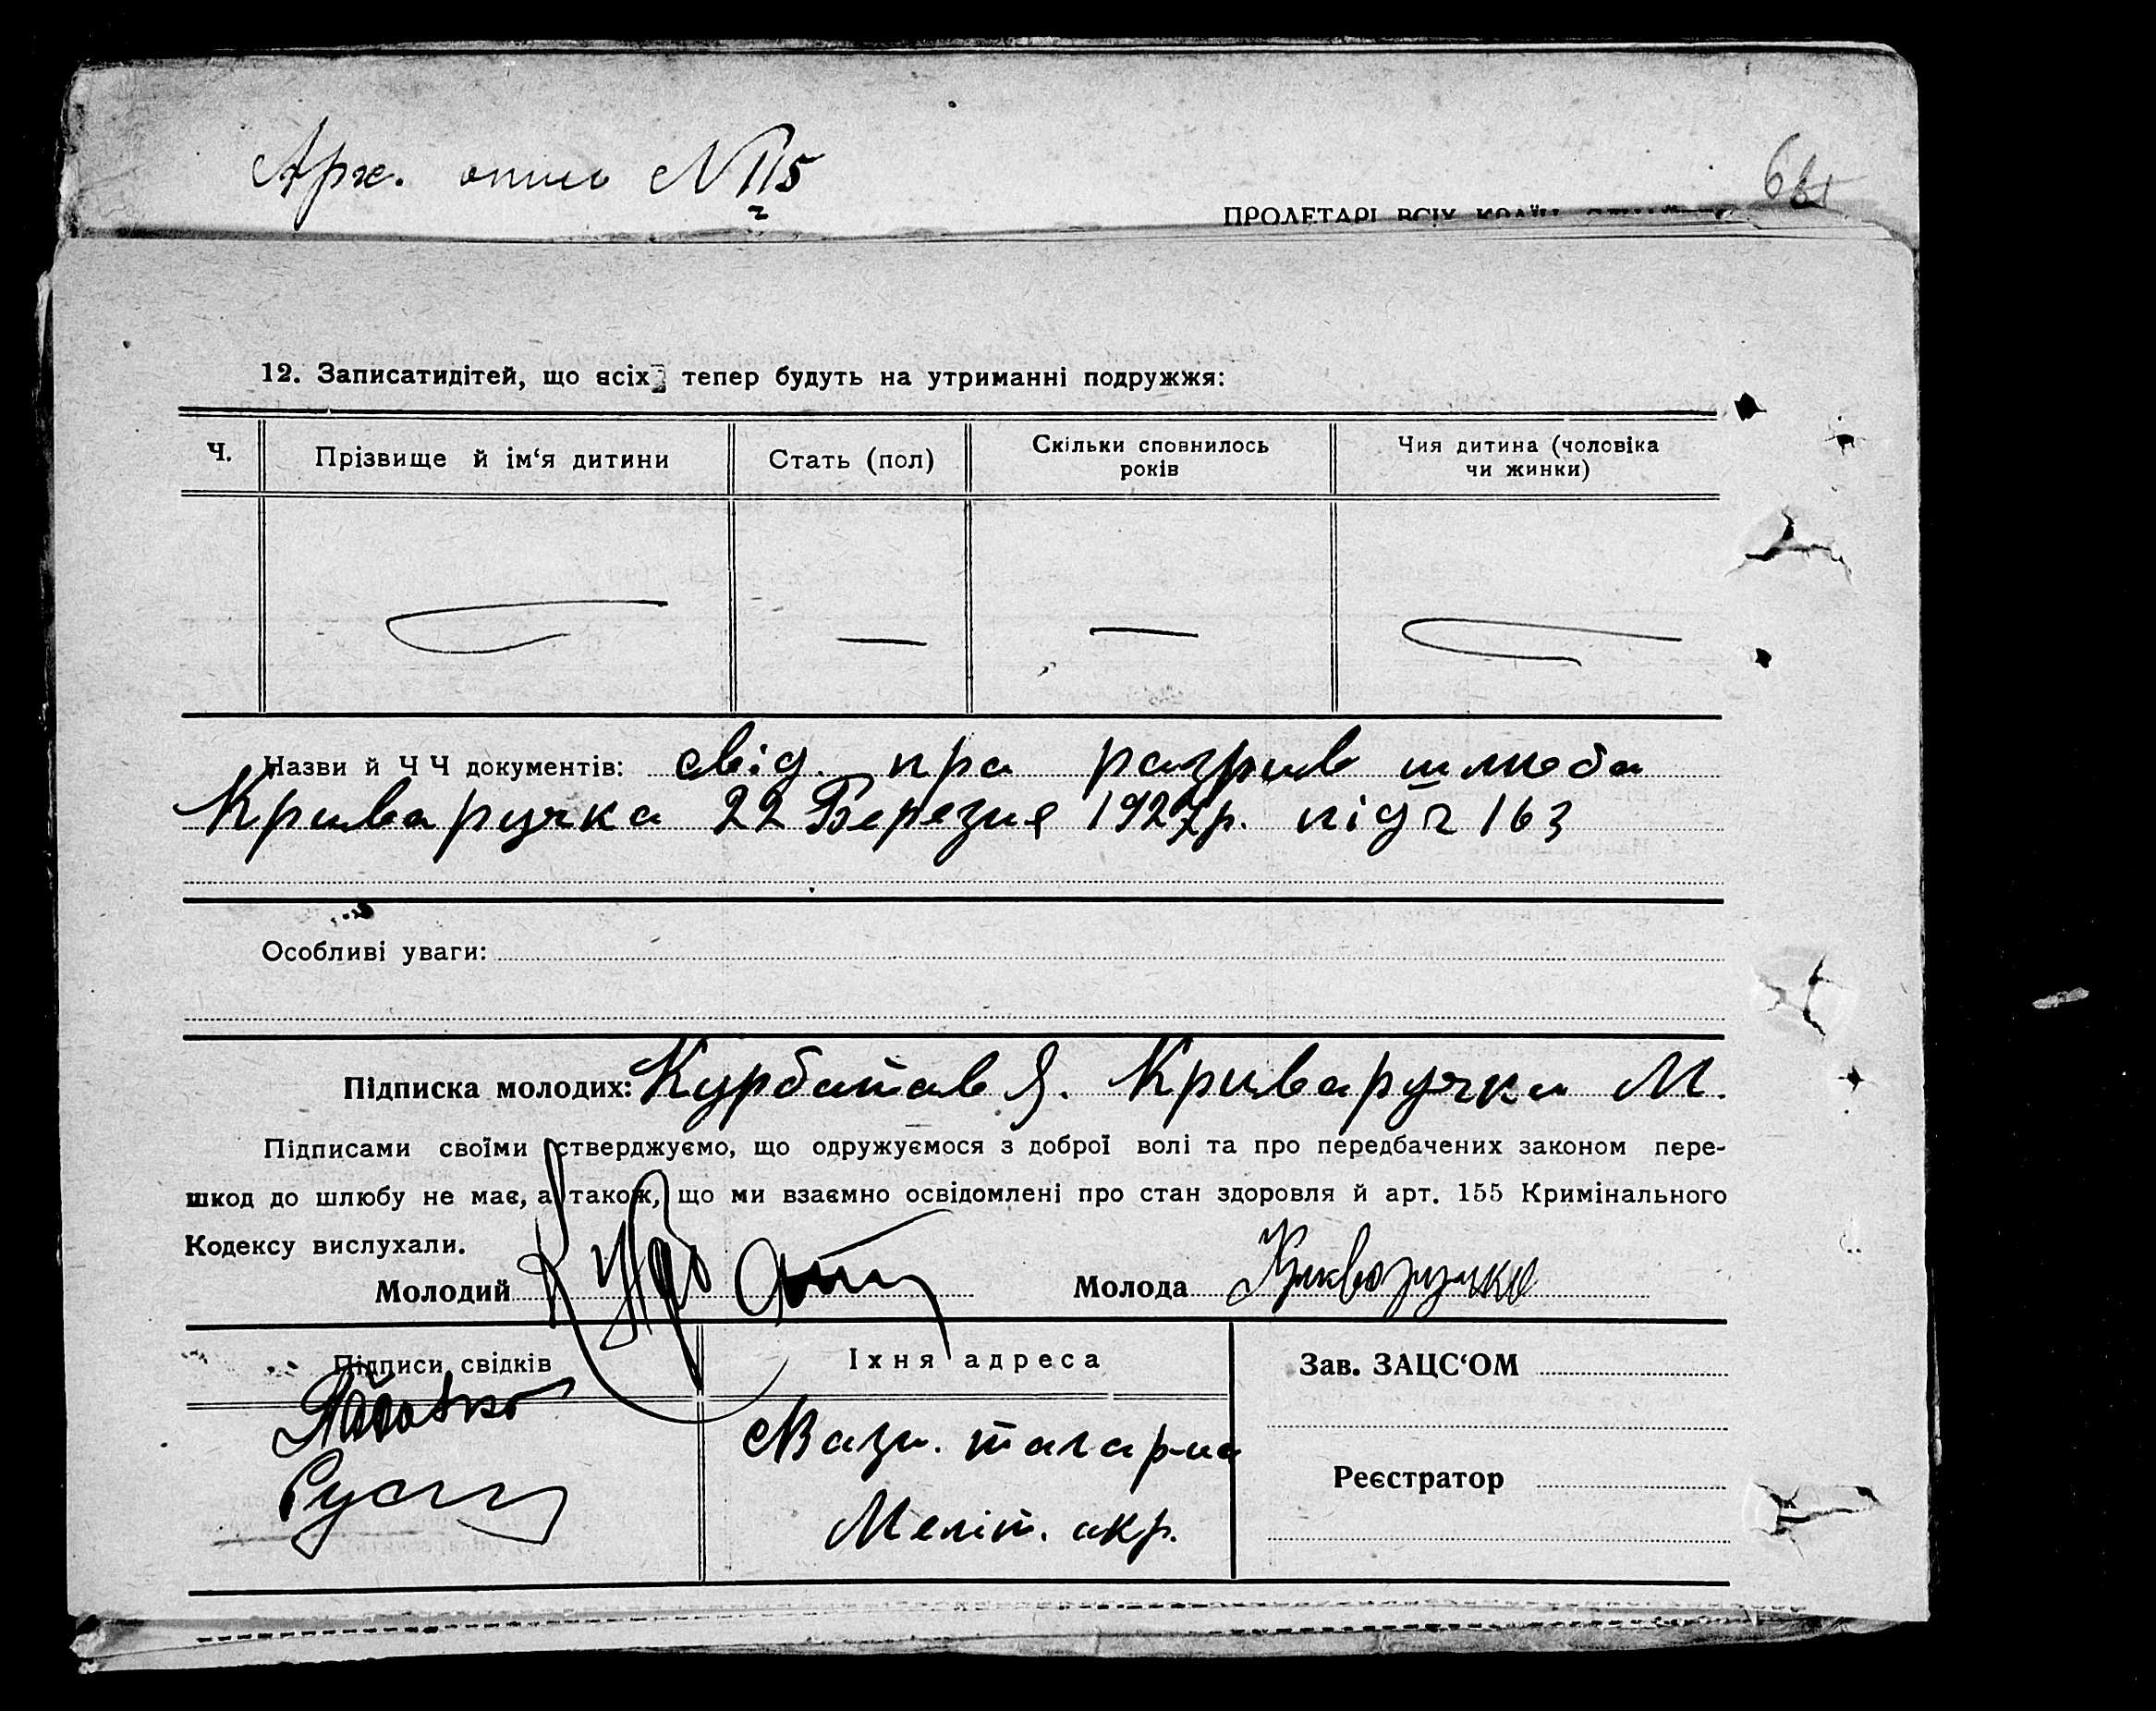 Арх. опись №115
ПРОЛЕТАРІ ВСІХ КРАЇН
12. Записатидітей, що всіх тепер будуть на утриманні подружжя:
Ч. Прізвище й ім'я дитини Стать (пол) Скільки сповнилось років Чия дитина (чоловіка чи жинки)
Назви й Ч Ч документів: свід. пра разрив шлюба
Криваручка 22 Березня 1927р. під ч 163
Особливі уваги:
Підписка молодих: Курбатав Я. Криваручка М.
Підписами своїми стверджуємо, що одружуємося з доброї волі та про передбачених законом пере-
шкод до шлюбу не має, а також, що ми взаємно освідомлені про стан здоровля й арт. 155 Кримінального
Кодексу вислухали.
Молодий Курбат Молода Криворучко
Підписи свідків Їхня адреса Зав. ЗАЦС'ОМ
Мелит. акр.
Реєстратор